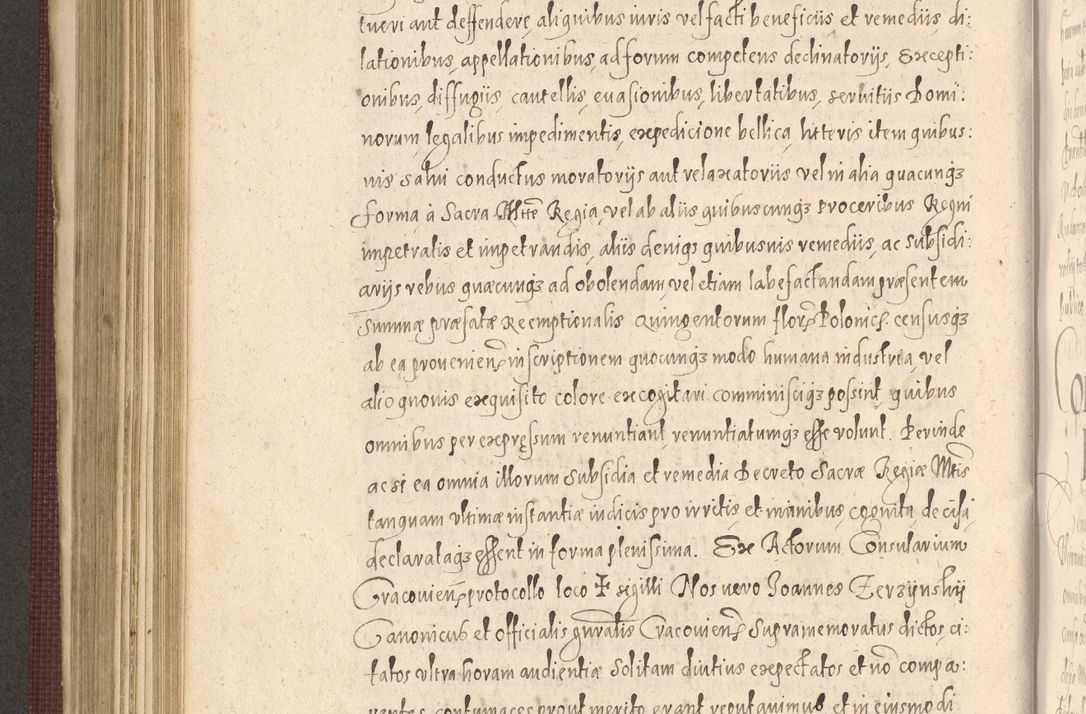 tueri aut deffendere, aliquibus iuris vel facti beneficiis et remediis di:
lationibus, appellationibus, ad forum competens declinatoriis, Excepti:
onibus, diffugiis, cautellis, evasionibus, libertatibus, servitiis Domi:
norum, legalibus impedimentis, expedicione bellica, litteris item quibus:
vis salvi conductus moratoriis aut relaxatoriis vel in alia quacunqz
forma à Sacra Mtte Regia, vel ab aliis quibuscunqz Proceribus Regni
impetratis et impetrandis, aliis deniqz quibusvis remediis, ac Subsidi:
ariis rebus quæcunqz ad obolendam, vel etiam labefactandam præsentem
Summæ præfatæ Reemptionalis Quingentorum flor: Polonic: censusqz
ab ea provenien: inscriptionem quocunqz modo humana industria, vel
alio quovis exquisito colore excogitari comminisciqz possint, quibus
omnibus per expressum renuntiant, renuntiatumqz esse volunt. Perinde
ac si ea omnia illorum Subsidia et remedia Decreto Sacræ Regiæ Mtis
tanquam ultimæ instantiæ iudicis pro irritis, et inanibus, cognita, decisa,
declarataqz essent in forma plenissima. Ex Actorum Consularium
Cracovien: protocollo loco ✠ sigilli Nos vero Joannes Zerzynskij
Canonicus et officialis gñralis Cracovien: Supramemoratus dictos, ci:
tatos ultra horam audientiæ Solitam diutius expectatos et nõ compa:
rentes, contumaces prout merito erant reputavimus et in eiusmodi